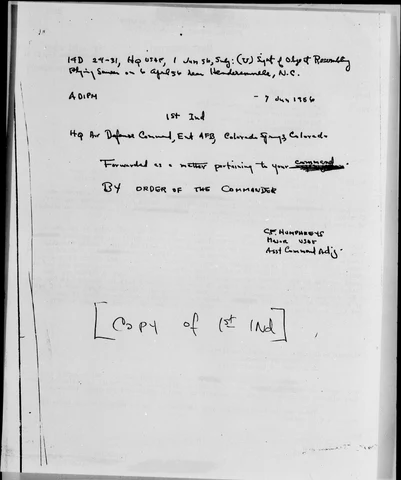 14D 24-31, HQ USAF, 1 Jun 56, Subj: (U) Sight of Object Resembling
Flying Saucer on 6 April 56 near Hendersonville, N.C.
ADIPM - 7 Jun 1956
1st Ind
HQ Air Defense Command, Ent AFB, Colorado Springs, Colorado
Forwarded as a matter pertaining to your command.
BY ORDER OF THE COMMANDER
C.F. HUMPHREYS
Major USAF
Asst Command Adj.
[COPY of 1st INd]